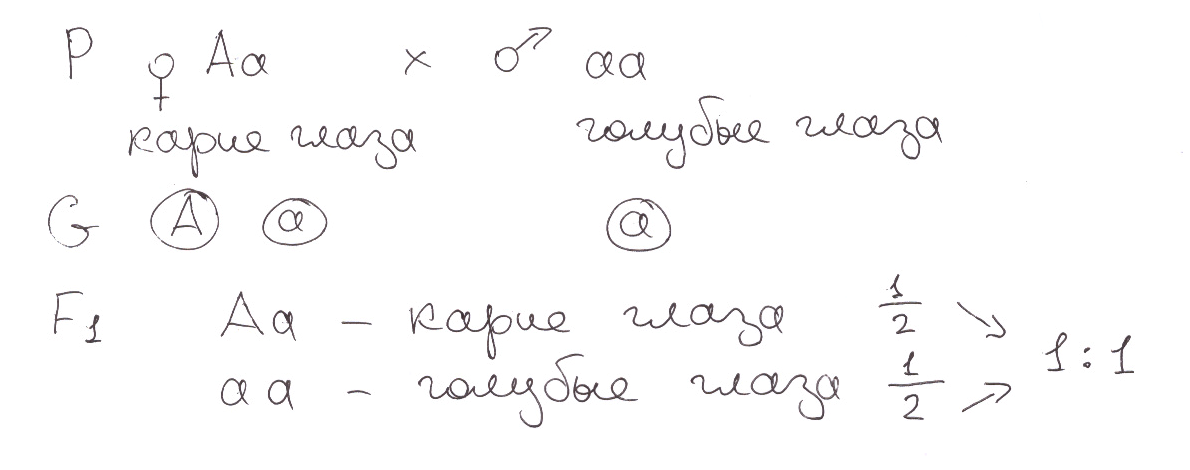 P ♀ Aa × ♂ aa
карие глаза голубые глаза
G A a a
F1 Aa – карие глаза 1/2 ↘
aa – голубые глаза 1/2 ↗ 1:1